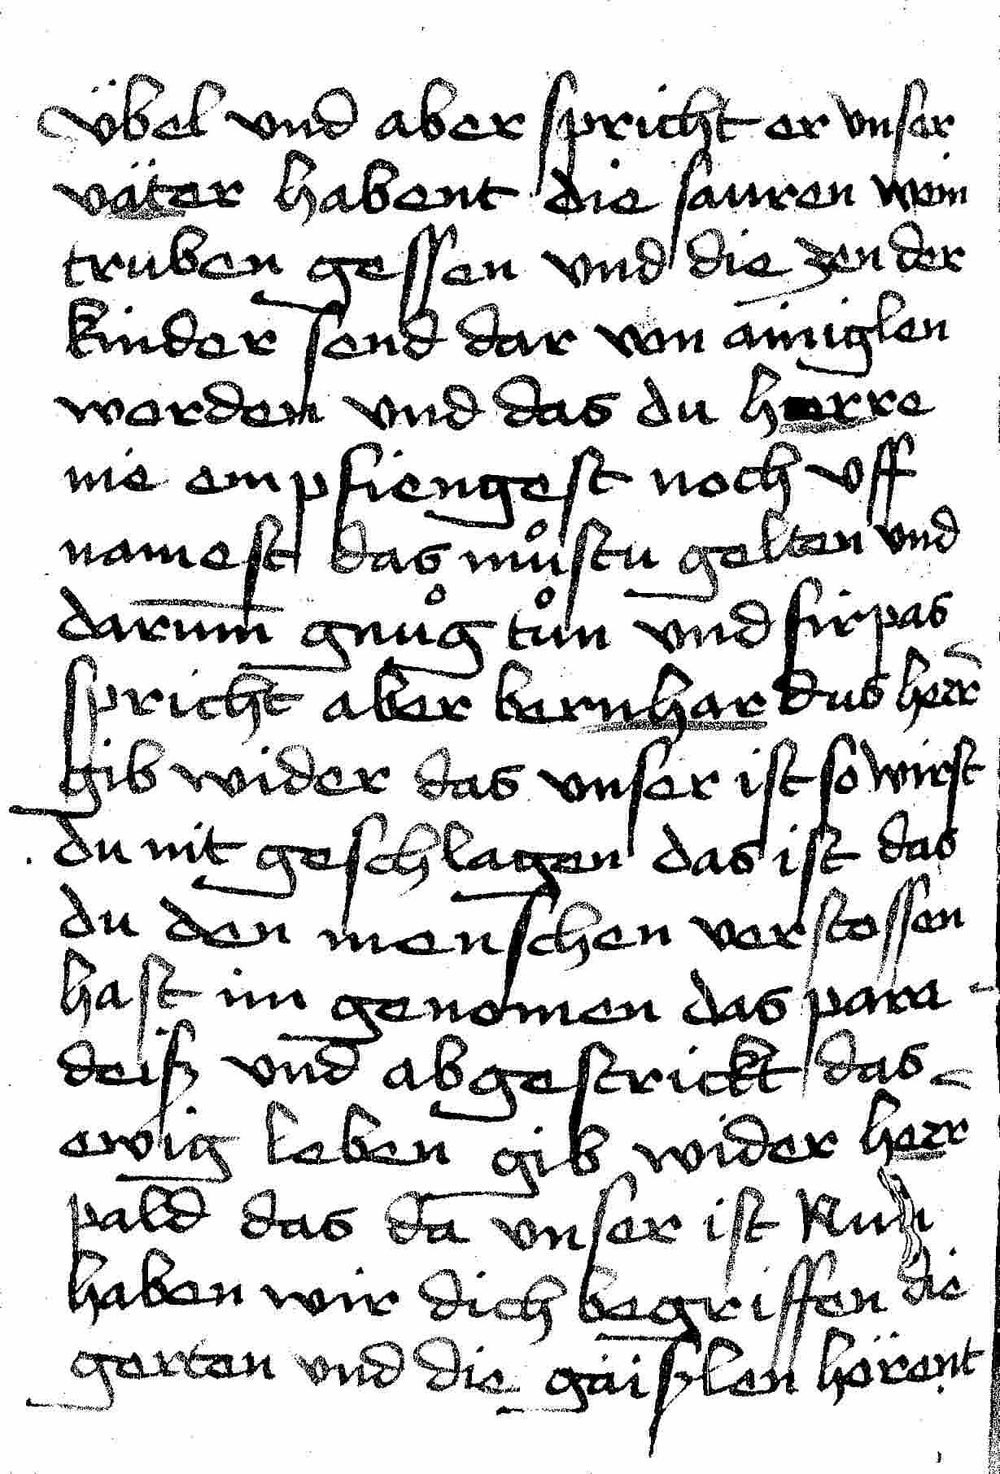 übel vnd aber spricht er vnser
väter habent die sauren wein
truben gessen vnd die zen der
kinder send dar von ainiglen
werden vnd das du herre
nie empfiengest noch vff
namest das můstu gelten vnd
darum̅ gnůg tůn vnd firpas
spricht aber bernhardus herr̅
gib wider das vnser ist so wirst
du nit geschlagen das ist das
du den menschen verstossen
hast im genomen das para-
deiß vnd abgestrickt das
ewig leben gib wider herr
pald das da vnser ist Nun
haben wir dich begriffen die
gerten vnd die gäißlen hörent